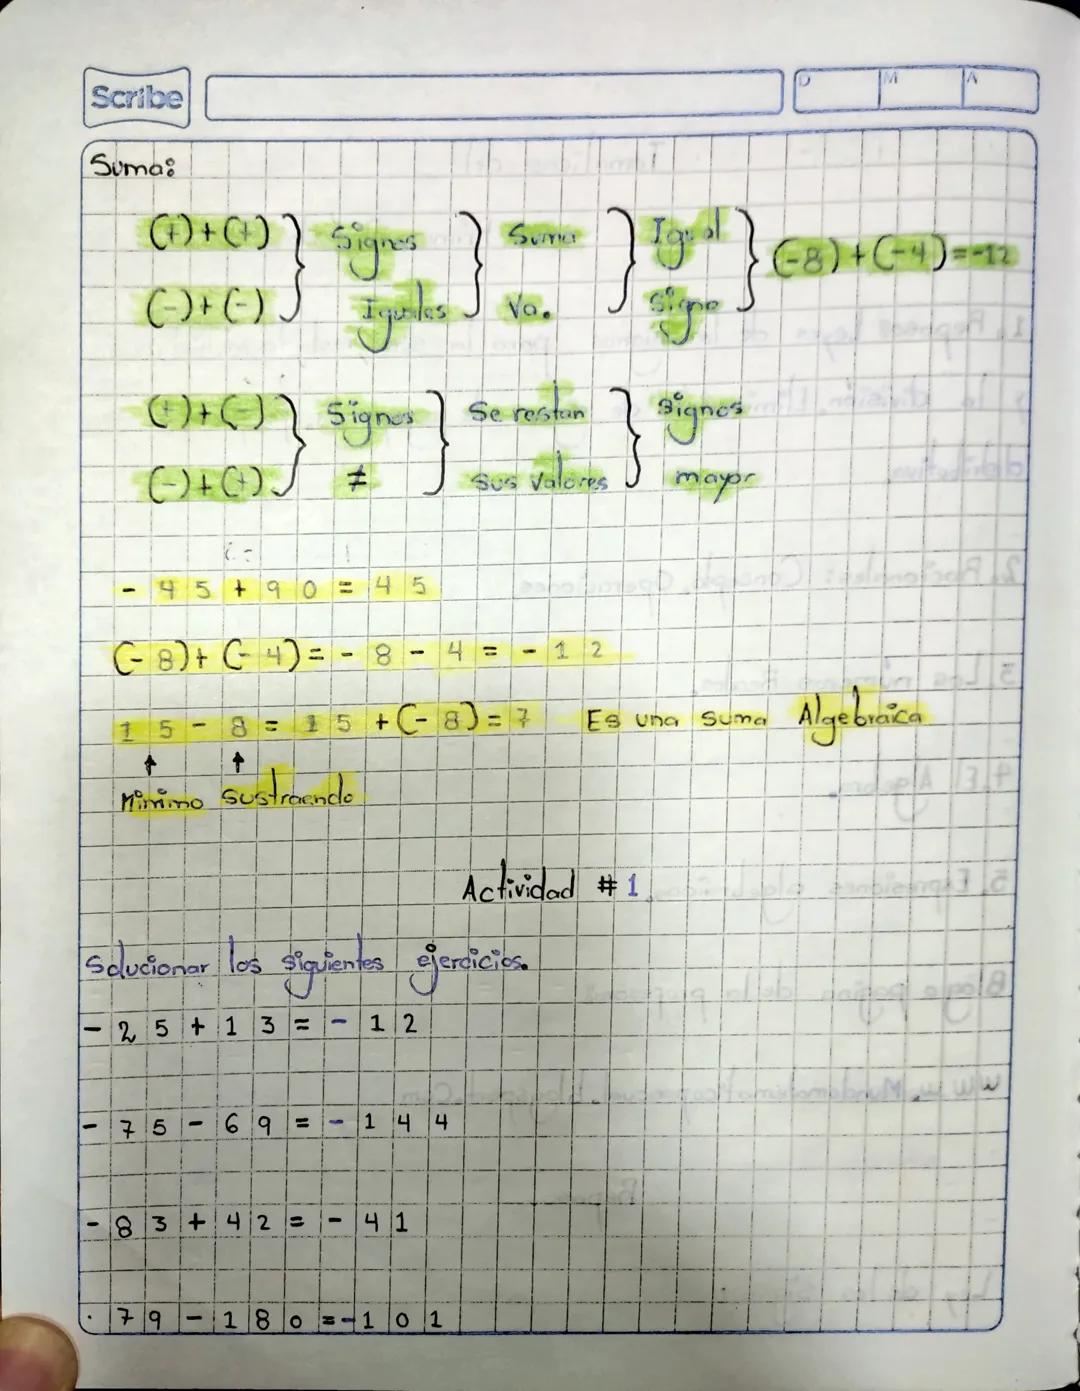 Scribe
D M A
Suma:
(+)+(+) } Signos } Suma } Igual } (-8)+(-4)=-12
(-)+(-) } Iguales } Va. } Signo }
(+)+(-) } Signos } Se restan } Signos
(-)+(+) } ≠ } Sus Valores } mayor
- 45 + 90 = 45
(-8)+(-4)= - 8 - 4 = - 12
15 - 8 = 15 +(-8)= 7 Es una suma Algebraica
↑ ↑
Minimo Sustraendo
Actividad # 1
Solucionar los siguientes ejercicios.
- 25 + 13 = - 12
- 75 - 69 = - 144
- 83 + 42 = - 41
· 79 - 180 = -101